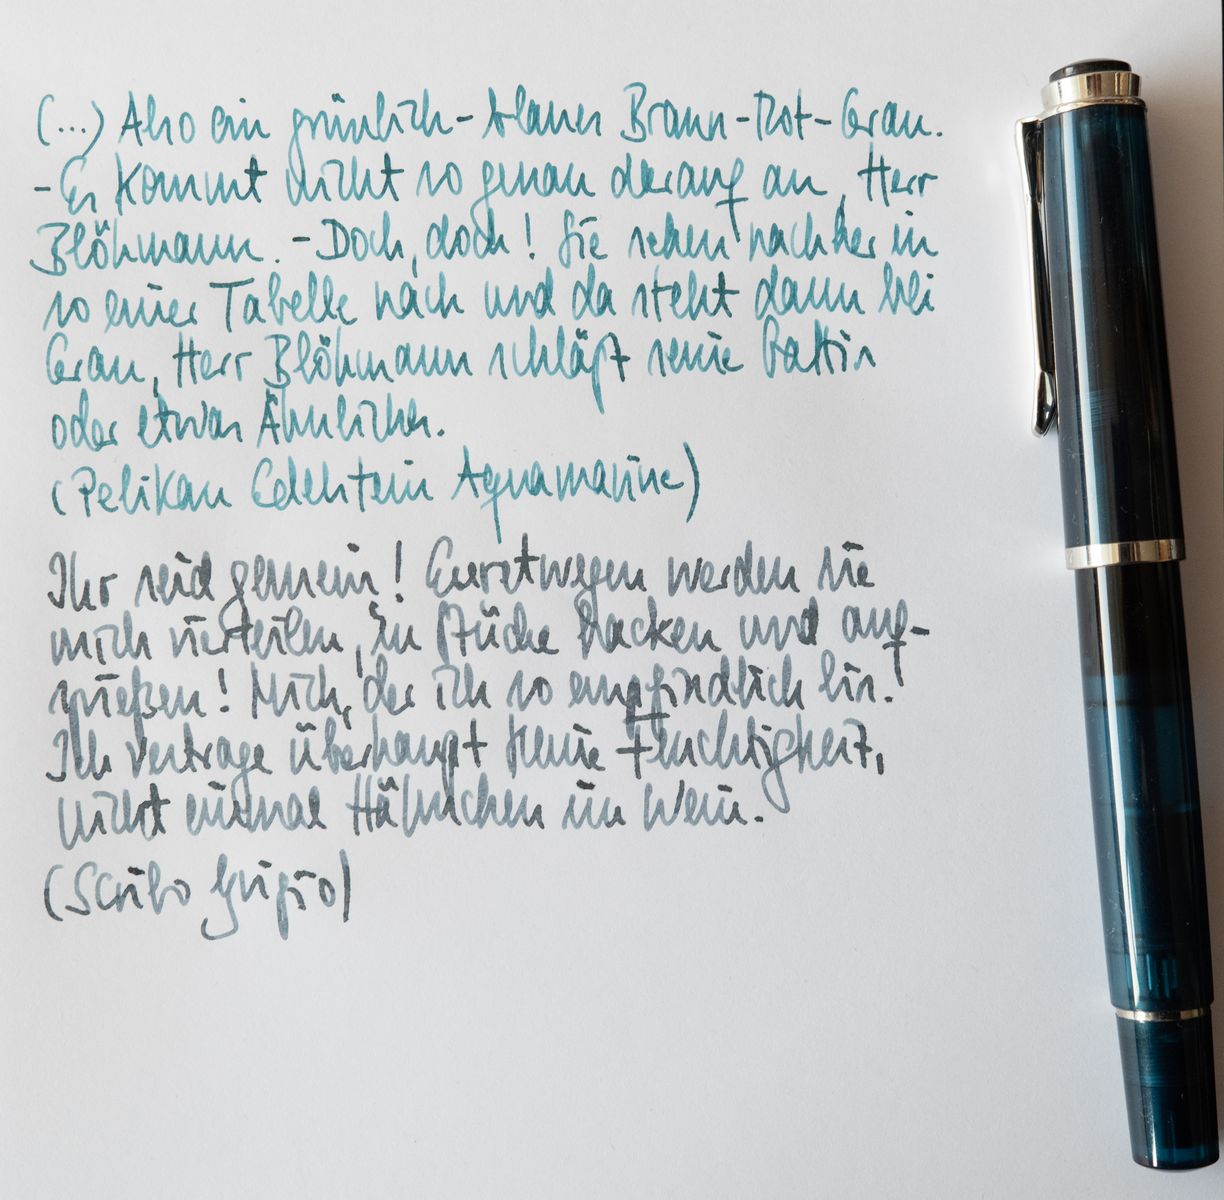 (...) Also ein grünlich-blaues Braun-Rot-Grau.
-Es kommt nicht so genau darauf an, Herr
Blöhmann. -Doch, doch! Sie sehen nachher in
so einer Tabelle nach und da steht dann bei
Grau, Herr Blöhmann schlägt seine Gattin
oder etwas Ähnliches.
(Pelikan Edelstein Aquamarine)
Ihr seid gemein! Euretwegen werden sie
mich vierteilen, in Stücke hacken und auf-
spießen! Mich, der ich so empfindlich bin.
Ich vertrage überhaupt keine Feuchtigkeit,
nicht einmal Hähnchen in Wein.
(Scribo Grigio)